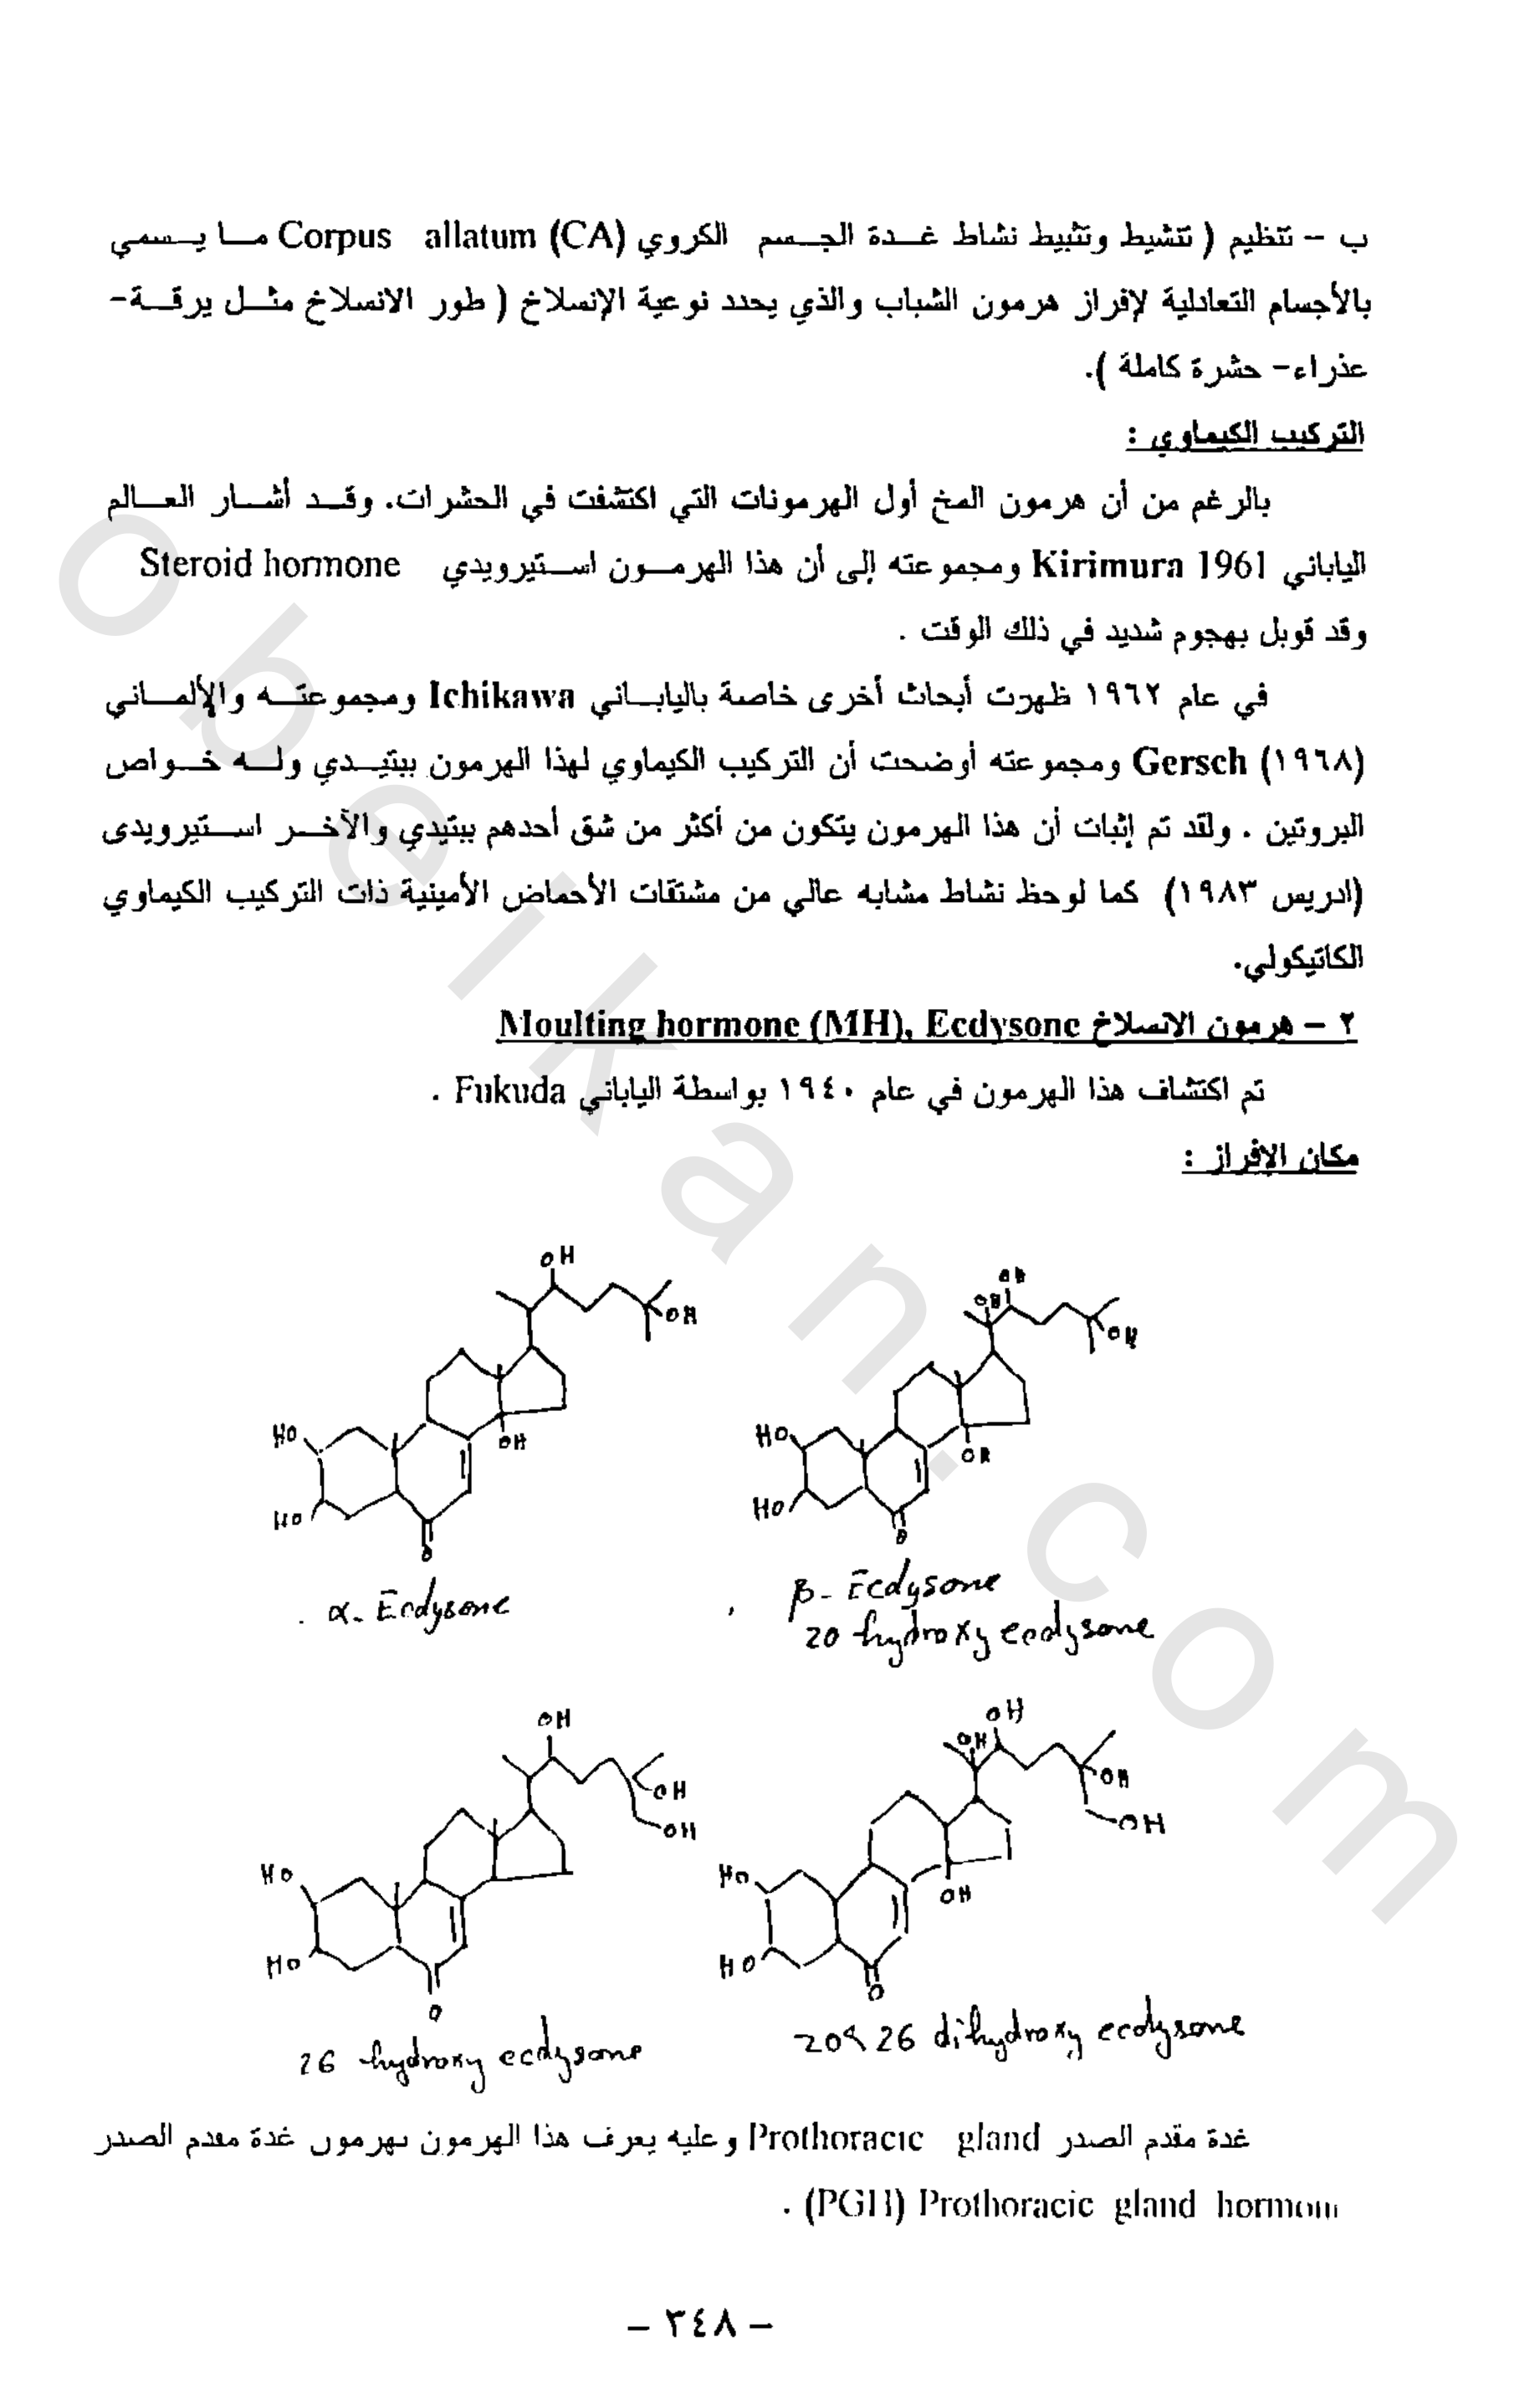 ب – تنظيم ( تنشيط وتثبيط نشاط غدة الجسم الكروي Corpus allatum (CA) ما يسمي
بالأجسام التعادلية لإفراز هرمون الشباب والذي يحدد نوعية الإنسلاخ ( طور الانسلاخ مثل يرقة-
عذراء- حشرة كاملة ).
التركيب الكيماوي :
بالرغم من أن هرمون المخ أول الهرمونات التي اكتشفت في الحشرات. وقد أشار العالم
الياباني Kirimura 1961 ومجموعته إلى أن هذا الهرمون استيرويدي Steroid hormone
وقد قوبل بهجوم شديد في ذلك الوقت .
في عام ١٩٦٢ ظهرت أبحاث أخرى خاصة بالياباني Ichikawa ومجموعته والألماني
Gersch (١٩٦٨) ومجموعته أوضحت أن التركيب الكيماوي لهذا الهرمون ببتيدي وله خواص
البروتين . ولقد تم إثبات أن هذا الهرمون يتكون من أكثر من شق أحدهم ببتيدي والآخر استيرويدى
(ادريس ١٩٨٣) كما لوحظ نشاط مشابه عالي من مشتقات الأحماض الأمينية ذات التركيب الكيماوي
الكاتيكولي.
٢ – هرمون الانسلاخ Moulting hormone (MH), Ecdysone
تم اكتشاف هذا الهرمون في عام ١٩٤٠ بواسطة الياباني Fukuda .
مكان الإفراز :
OH
OH
HO
OH
HO
O
α- Ecdysone
OH
OH
OH
HO
OH
HO
O
β- Ecdysone
20 hydroxy ecdysone
OH
OH
OH
HO
HO
O
26 hydroxy ecdysone
OH
OH
OH
OH
HO
OH
HO
O
20، 26 dihydroxy ecdysone
غدة مقدم الصدر Prothoracic gland وعليه يعرف هذا الهرمون بهرمون غدة مقدم الصدر
(PGH) Prothoracic gland hormon .
– ٣٤٨ –
obeikan.com